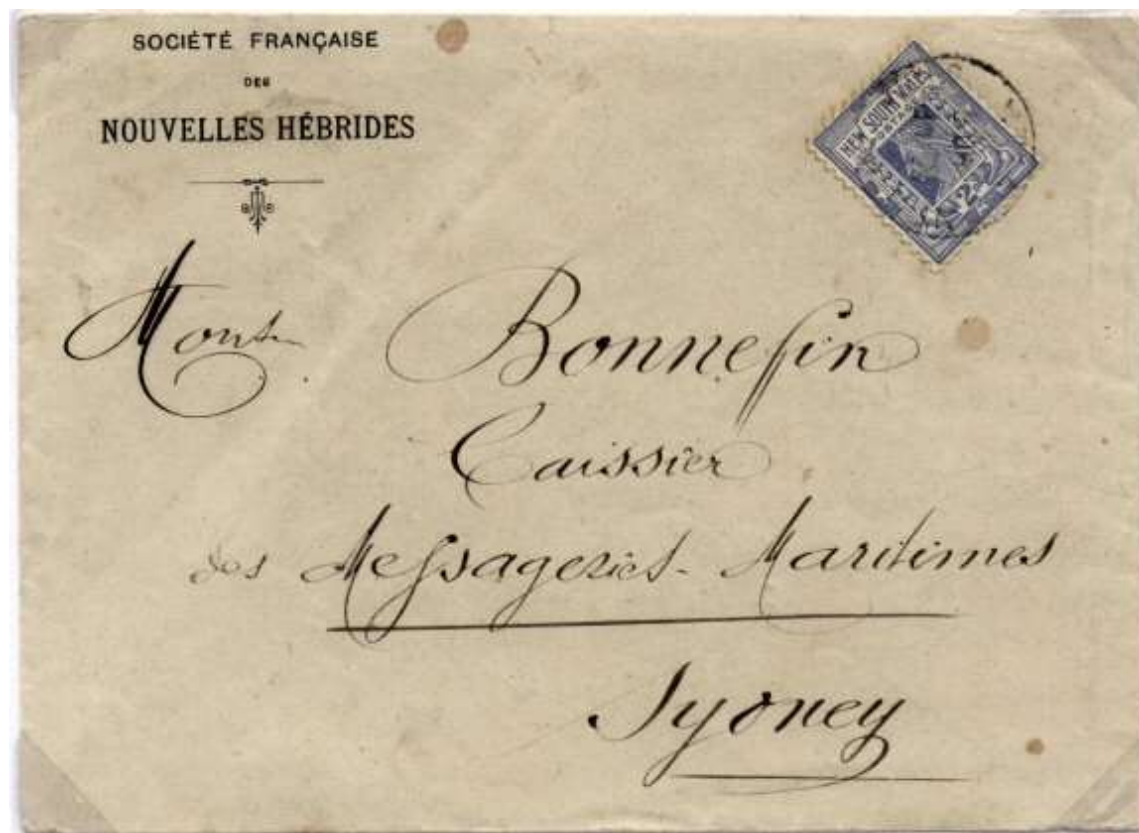 SOCIÉTÉ FRANÇAISE
DES
NOUVELLES HÉBRIDES
NEW SOUTH WALES
POSTAGE
Bonnefin
Caissier
des Messageries Maritimes
Sydney